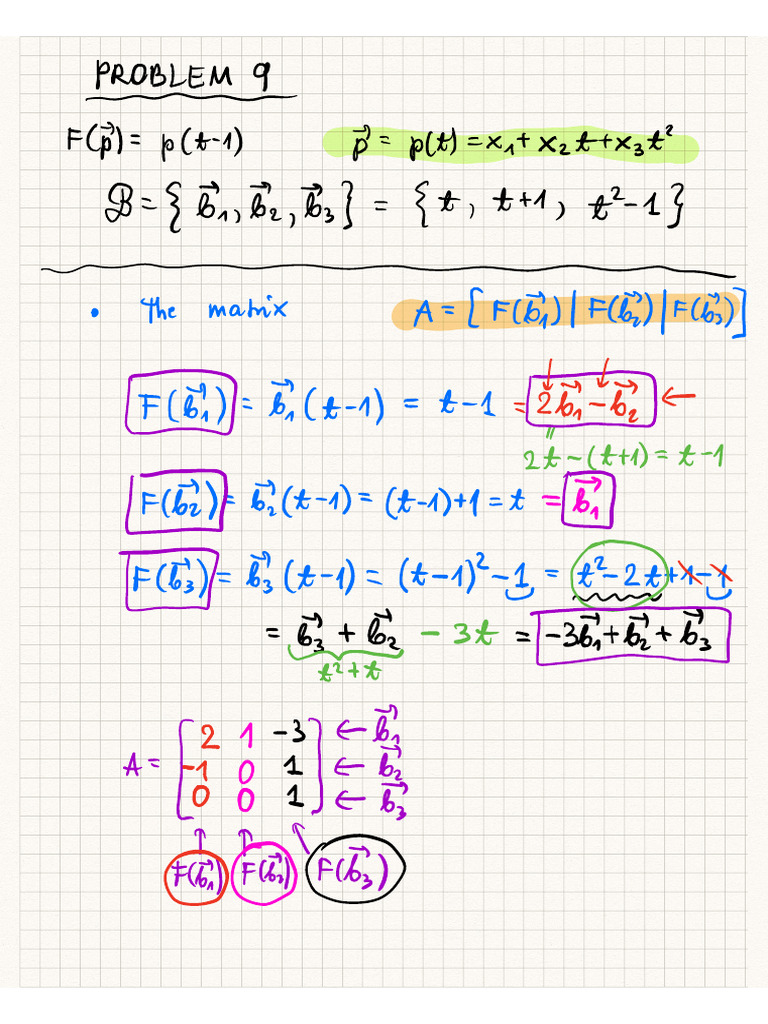 PROBLEM 9
F(p⃗) = p(t-1)    p⃗ = p(t) = x₁ + x₂t + x₃t²
ℬ = { b⃗₁, b⃗₂, b⃗₃ } = { t, t+1, t²-1 }
• the matrix    A = [ F(b⃗₁) | F(b⃗₂) | F(b⃗₃) ]
F(b⃗₁) = b⃗₁(t-1) = t-1 = 2b⃗₁ - b⃗₂ ←
2t-(t+1) = t-1
F(b⃗₂) = b⃗₂(t-1) = (t-1)+1 = t = b⃗₁
F(b⃗₃) = b⃗₃(t-1) = (t-1)² - 1 = t² - 2t + 1 - 1
= b⃗₃ + b⃗₂ - 3t = -3b⃗₁ + b⃗₂ + b⃗₃
t² + t
2 1 -3 ← b⃗₁
A = -1 0 1 ← b⃗₂
0 0 1 ← b⃗₃
F(b⃗₁) F(b⃗₂) F(b⃗₃)